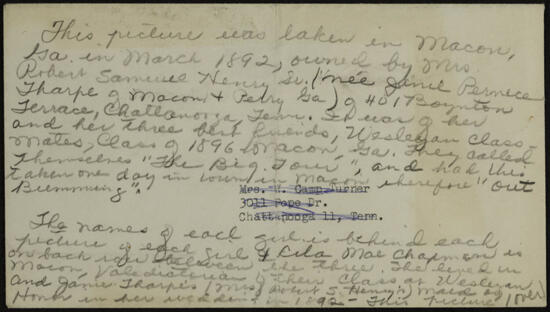 This picture was taken in Macon,
Ga. in March 1892, owned by Mrs.
Robert Samuel Henry Sr. (née Janie Pernece
Tharpe of Macon & Perry Ga) of 401 Boynton
Terrace, Chattanooga, Tenn. It was of her
and her three best friends, Wesleyan Class-
Mates, Class of 1896 Macon, Ga. They called
Themselves "The Big Four", and had this
taken one day in town in Macon therefore "out
Bumming".
Mrs. W. Camp Turner
3011 Pope Dr.
Chattanooga 11, Tenn.
The names of each girl is behind each
picture of each girl & Lila Mae Chapman is
on back row between the three. She lived in
Macon, Valedictorian of Their Class at Wesleyan
and Janie Tharpe's (Mrs. Robert S. Henry's) Maid of
Honor in her wedding in 1892 - This picture (over)